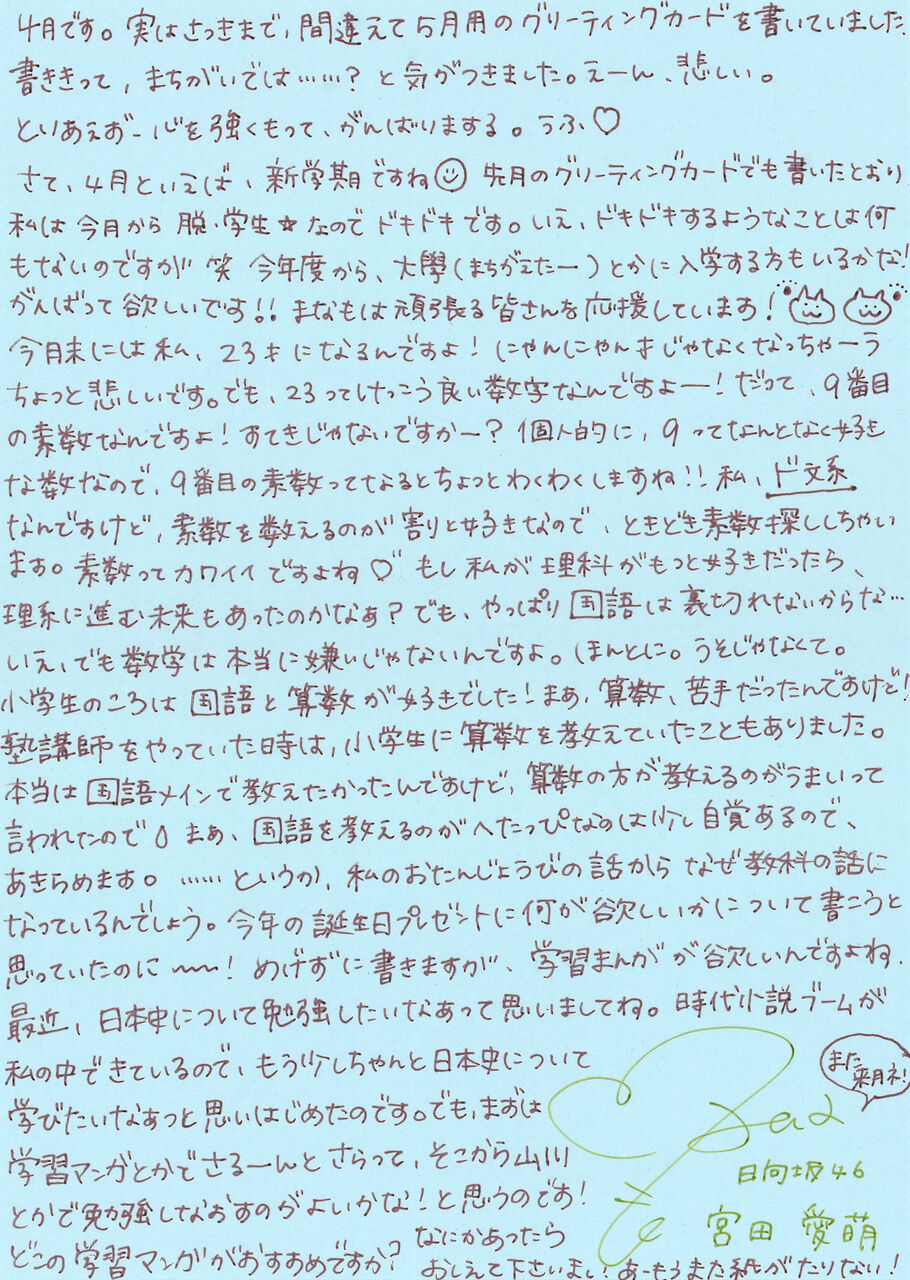 4月です。実はさっきまで、間違えて5月用のグリーティングカードを書いていました
書ききって、まちがいでは……?と気がつきました。えーん、悲しい。
とりあえずー心を強くもって、がんばりまする。うふ♡
さて、4月といえば、新学期ですね☺ 先月のグリーティングカードでも書いたとおり
私は今月から脱・学生☆なのでドキドキです。いえ、ドキドキするようなことは何
もないのですが 笑 今年度から、大學(まちがえたー)とかに入学する方もいるかな!
がんばって欲しいです!!まなもは頑張る皆さんを応援しています!
今月末には私、23才になるんですよ!にゃんにゃん才じゃなくなっちゃーう
ちょっと悲しいです。でも、23ってけっこう良い数字なんですよー!だって、9番目
の素数なんですよ!すてきじゃないですかー?個人的に、9ってなんとなく好き
な数なので、9番目の素数ってなるとちょっとわくわくしますね!!私、ド文系
なんですけど、素数を数えるのが割と好きなので、ときどき素数探ししちゃい
ます。素数ってカワイイですよね♡もし私が理科がもっと好きだったら、
理系に進む未来もあったのかなぁ?でも、やっぱり国語は裏切れないからな…
いえ、でも数学は本当に嫌いじゃないんですよ。ほんとに。うそじゃなくて。
小学生のころは国語と算数が好きでした!まあ、算数、苦手だったんですけど!
塾講師をやっていた時は、小学生に算数を教えていたこともありました。
本当は国語メインで教えたかったんですけど、算数の方が教えるのがうまいって
言われたので まあ、国語を教えるのがへたっぴなのは少し自覚あるので、
あきらめます。……というか、私のおたんじょうびの話からなぜ教科の話に
なっているんでしょう。今年の誕生日プレゼントに何が欲しいかについて書こうと
思っていたのに〜〜!めげずに書きますが、学習まんがが欲しいんですよね.
最近、日本史について勉強したいなあって思いましてね。時代小説ブームが
私の中できているので、もう少しちゃんと日本史について
学びたいなあっと思いはじめたのです。でも、まずは
学習マンガとかでさるーんとさらって、そこから山川
とかで勉強しなおすのがよいかな!と思うのです!
どこの学習マンガがおすすめですか?なにかあったら
おしえて下さいまし!あーもうまた紙がたりない!
また
来月ネ!
日向坂46
宮田愛萌